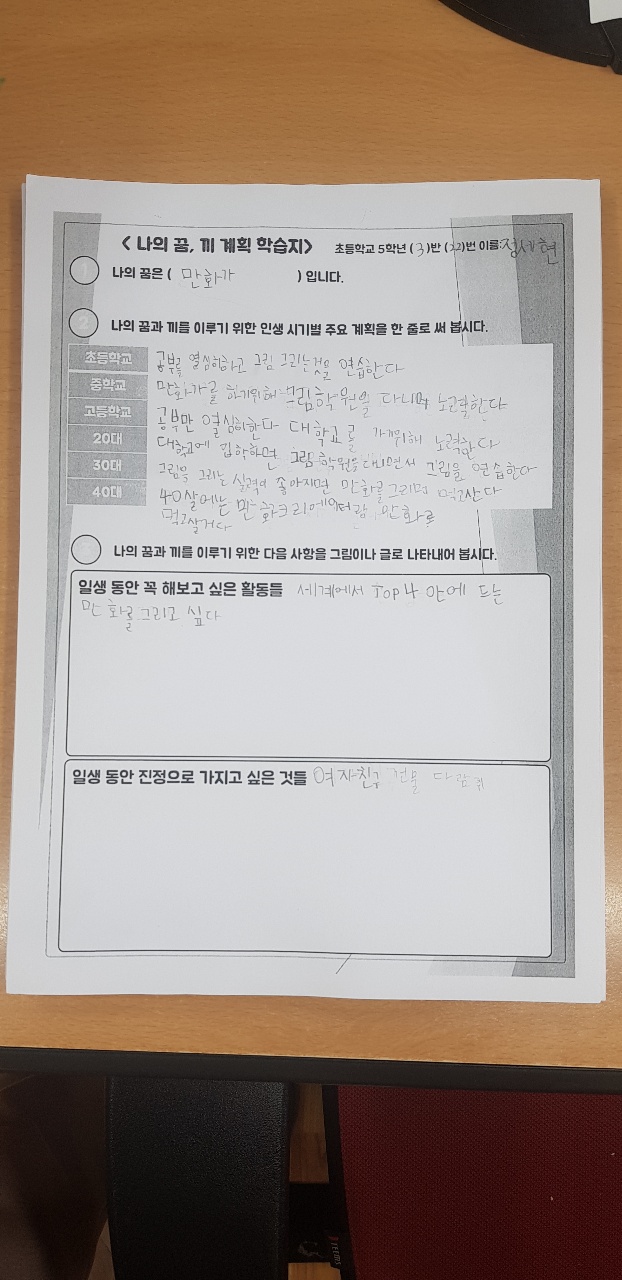 < 나의 꿈, 끼 계획 학습지> 초등학교 5학년 (3)반 (22)번 이름:정세현
1 나의 꿈은 ( 만화가 ) 입니다.
2 나의 꿈과 끼를 이루기 위한 인생 시기별 주요 계획을 한 줄로 써 봅시다.
초등학교 공부를 열심히하고 그림 그리는것을 연습한다
중학교 만화가를 하기위해 그림학원을 다니며 노력한다
고등학교 공부만 열심히한다 대학교를 가기위해 노력한다
20대 대학교에 입학하면 그림 학원을 다니면서 그림을 연습한다
30대 그림을 그리는 실력이 좋아지면 만화를 그리며 먹고산다
40대 40살에는 만화크리에이터랑 만화로
먹고살거다
3 나의 꿈과 끼를 이루기 위한 다음 사항을 그림이나 글로 나타내어 봅시다.
일생 동안 꼭 해보고 싶은 활동들 세계에서 top4 안에 드는
만화를 그리고 싶다
일생 동안 진정으로 가지고 싶은 것들 여자친구 건물 다람쥐